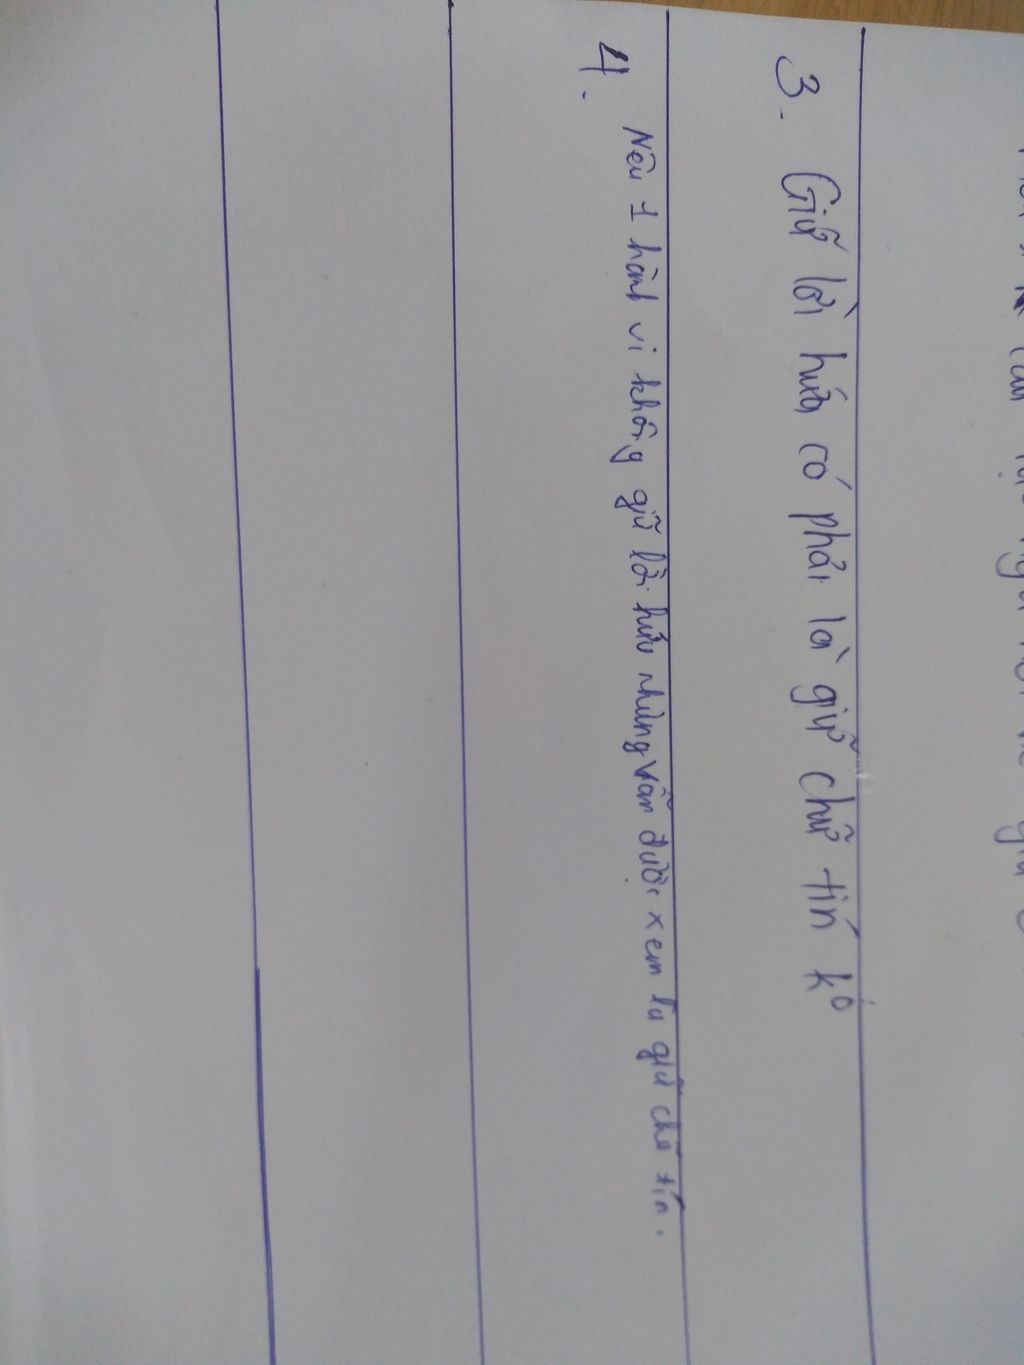 3. Giữ lời hứa có phải là giữ chữ tín ko
4. Nêu 1 hành vi không giữ lời hứa nhưng vẫn được xem là giữ chữ tín.